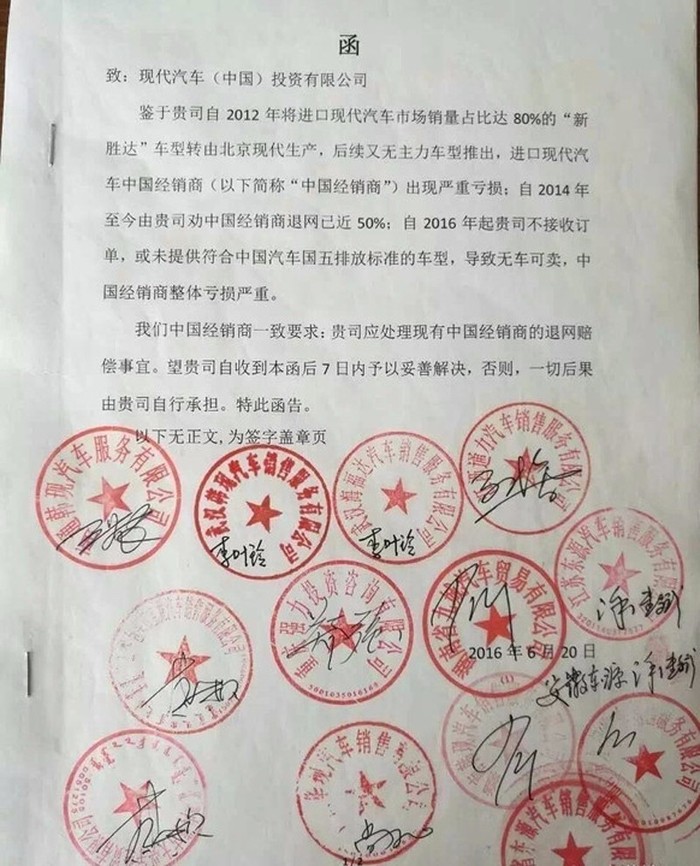 函
致：现代汽车（中国）投资有限公司
鉴于贵司自 2012 年将进口现代汽车市场销量占比达 80%的“新
胜达”车型转由北京现代生产，后续又无主力车型推出，进口现代汽
车中国经销商（以下简称“中国经销商”）出现严重亏损；自 2014 年
至今由贵司劝中国经销商退网已近 50%；自 2016 年起贵司不接收订
单，或未提供符合中国汽车国五排放标准的车型，导致无车可卖，中
国经销商整体亏损严重。
我们中国经销商一致要求：贵司应处理现有中国经销商的退网赔
偿事宜。望贵司自收到本函后 7 日内予以妥善解决，否则，一切后果
由贵司自行承担。特此函告。
以下无正文，为签字盖章页
韩现汽车服务有限公司
武汉韩现汽车销售服务有限公司
武汉海福达汽车销售服务有限公司
通力汽车销售服务有限公司
李叶玲
李叶玲
江苏东源汽车销售服务有限公司
强力投资咨询有限公司
5001035016163
汽车贸易有限公司
(1)
2016 年 6 月 20 日
安徽东源
现汽车销售有限公司
东源汽车销售服务有限公司